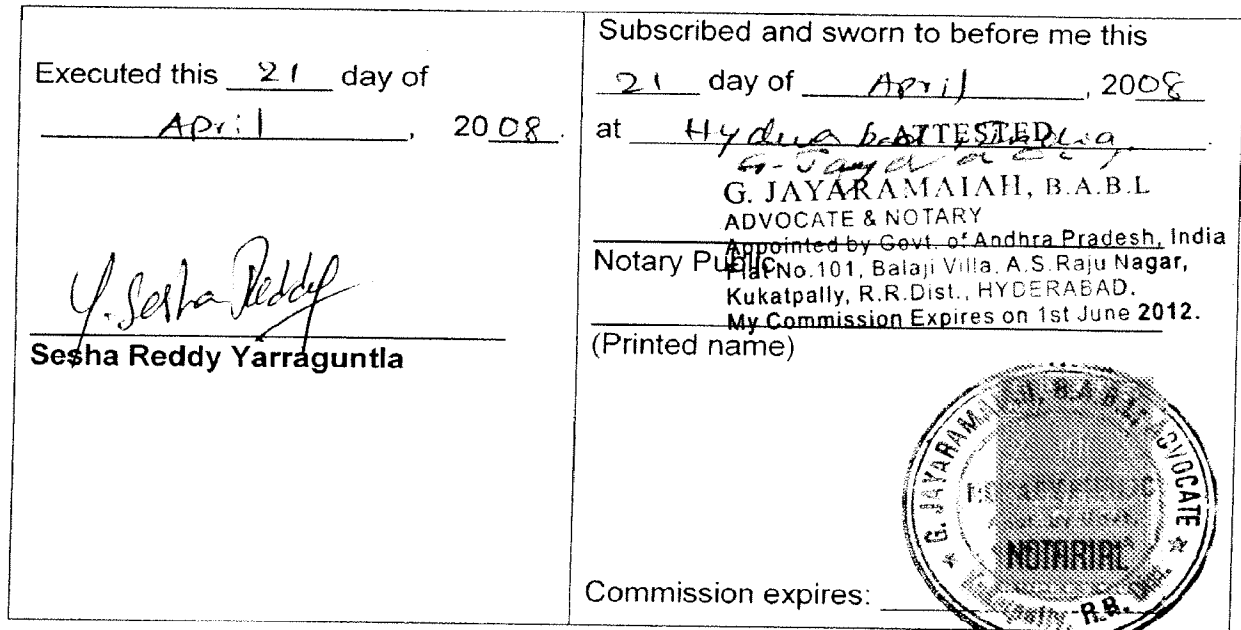 Executed this 21 day of
April, 2008.
Y. Sesha Reddy
Sesha Reddy Yarraguntla
Subscribed and sworn to before me this
21 day of April, 2008
at Hyderabad, India
ATTESTED
G. JAYARAMAIAH, B.A.B.L
ADVOCATE & NOTARY
Appointed by Govt. of Andhra Pradesh, India
Notary Public
Flat No.101, Balaji Villa, A.S.Raju Nagar,
Kukatpally, R.R.Dist., HYDERABAD.
My Commission Expires on 1st June 2012.
(Printed name)
G. JAYARAMAIAH, B.A.B.L. ADVOCATE
NOTARIAL
R.R. Dist.
Commission expires: